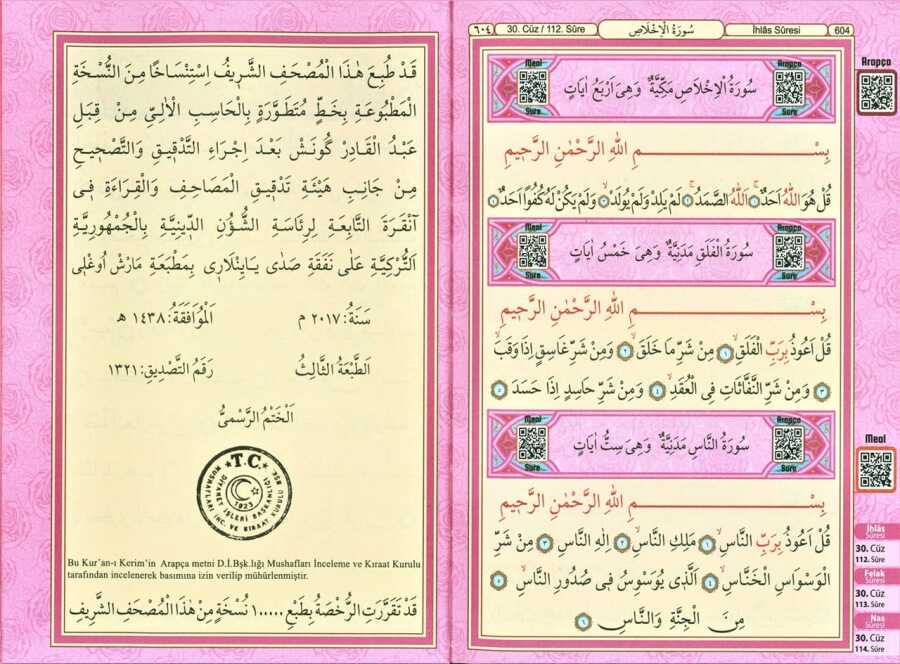 ٦٠٤ 30. Cüz / 112. Sûre سُورَةُ الْاِخْلَاصِ İhlâs Sûresi 604
Meal Sûre سُورَةُ الْاِخْلَاصِ مَكِّيَّةٌ وَهِىَ اَرْبَعُ اٰيَاتٍ Arapça Sûre
بِسْــــــمِ اللّٰهِ الرَّحْمٰنِ الرَّح۪يمِ
قُلْ هُوَ اللّٰهُ اَحَدٌۚ ﴿١﴾ اَللّٰهُ الصَّمَدُۚ ﴿٢﴾ لَمْ يَلِدْ وَلَمْ يُولَدْۙ ﴿٣﴾ وَلَمْ يَكُنْ لَهُ كُفُوًا اَحَدٌ ﴿٤﴾
Meal Sûre سُورَةُ الْفَلَقِ مَدَنِيَّةٌ وَهِىَ خَمْسُ اٰيَاتٍ Arapça Sûre
بِسْــــــمِ اللّٰهِ الرَّحْمٰنِ الرَّح۪يمِ
قُلْ اَعُوذُ بِرَبِّ الْفَلَقِۙ ﴿١﴾ مِنْ شَرِّ مَا خَلَقَۙ ﴿٢﴾ وَمِنْ شَرِّ غَاسِقٍ اِذَا وَقَبَۙ
﴿٣﴾ وَمِنْ شَرِّ النَّفَّاثَاتِ فِى الْعُقَدِۙ ﴿٤﴾ وَمِنْ شَرِّ حَاسِدٍ اِذَا حَسَدَ ﴿٥﴾
Meal Sûre سُورَةُ النَّاسِ مَدَنِيَّةٌ وَهِىَ سِتُّ اٰيَاتٍ Arapça Sûre
بِسْــــــمِ اللّٰهِ الرَّحْمٰنِ الرَّح۪يمِ
قُلْ اَعُوذُ بِرَبِّ النَّاسِۙ ﴿١﴾ مَلِكِ النَّاسِۙ ﴿٢﴾ اِلٰهِ النَّاسِۙ ﴿٣﴾ مِنْ شَرِّ
الْوَسْوَاسِ الْخَنَّاسِۙ ﴿٤﴾ اَلَّذ۪ى يُوَسْوِسُ ف۪ى صُدُورِ النَّاسِۙ ﴿٥﴾
مِنَ الْجِنَّةِ وَالنَّاسِ ﴿٦﴾
Arapça
Meal
İhlâs
Sûresi
30. Cüz
112. Sûre
Felak
Sûresi
30. Cüz
113. Sûre
Nas
Sûresi
30. Cüz
114. Sûre
قَدْ طُبِعَ هٰذَا الْمُصْحَفُ الشَّر۪يفُ اِسْتِنْسَاخًا مِنَ النُّسْخَةِ
الْمَطْبُوعَةِ بِخَطٍّ مُتَطَوَّرَةٍ بِالْحَاسِبِ الْاٰلِىِّ مِنْ قِبَلِ
عَبْدُ الْقَادِرْ كُونَشْ بَعْدَ اِجْرَاءِ التَّدْق۪يقِ وَالتَّصْح۪يحِ
مِنْ جَانِبِ هَيْئَةِ تَدْق۪يقِ الْمَصَاحِفِ وَالْقِرَاءَةِ ف۪ى
آنْقَرَةَ التَّابِعَةِ لِرِئَاسَةِ الشُّؤُنِ الدّ۪ينِيَّةِ بِالْجُمْهُورِيَّةِ
اَلتُّرْكِيَّةِ عَلٰى نَفَقَةِ صَدٰى يَايِنْلَار۪ى بِمَطْبَعَةِ مَارْشْ اُوغْلِى
سَنَةُ: ٢٠١٧ م اَلْمُوَافَقَةُ: ١٤٣٨ هـ
اَلطَّبْعَةُ الثَّالِثُ رَقَمُ التَّصْد۪يقِ: ١٣٢١
اَلْخَتْمُ الرَّسْمِىُّ
T.C.
DİYANET İŞLERİ BAŞKANLIĞI
MUSHAFLARI İNC. VE KIRAAT KURULU BŞK.
1923
Bu Kur'an-ı Kerim'in Arapça metni D.İ.Bşk.lığı Mushafları İnceleme ve Kıraat Kurulu
tarafından incelenerek basımına izin verilip mühürlenmiştir.
قَدْ تَقَرَّرَتِ الرُّخْصَةُ بِطَبْعِ ١٠.... نُسْخَةٍ مِنْ هٰذَا الْمُصْحَفِ الشَّر۪يفِ